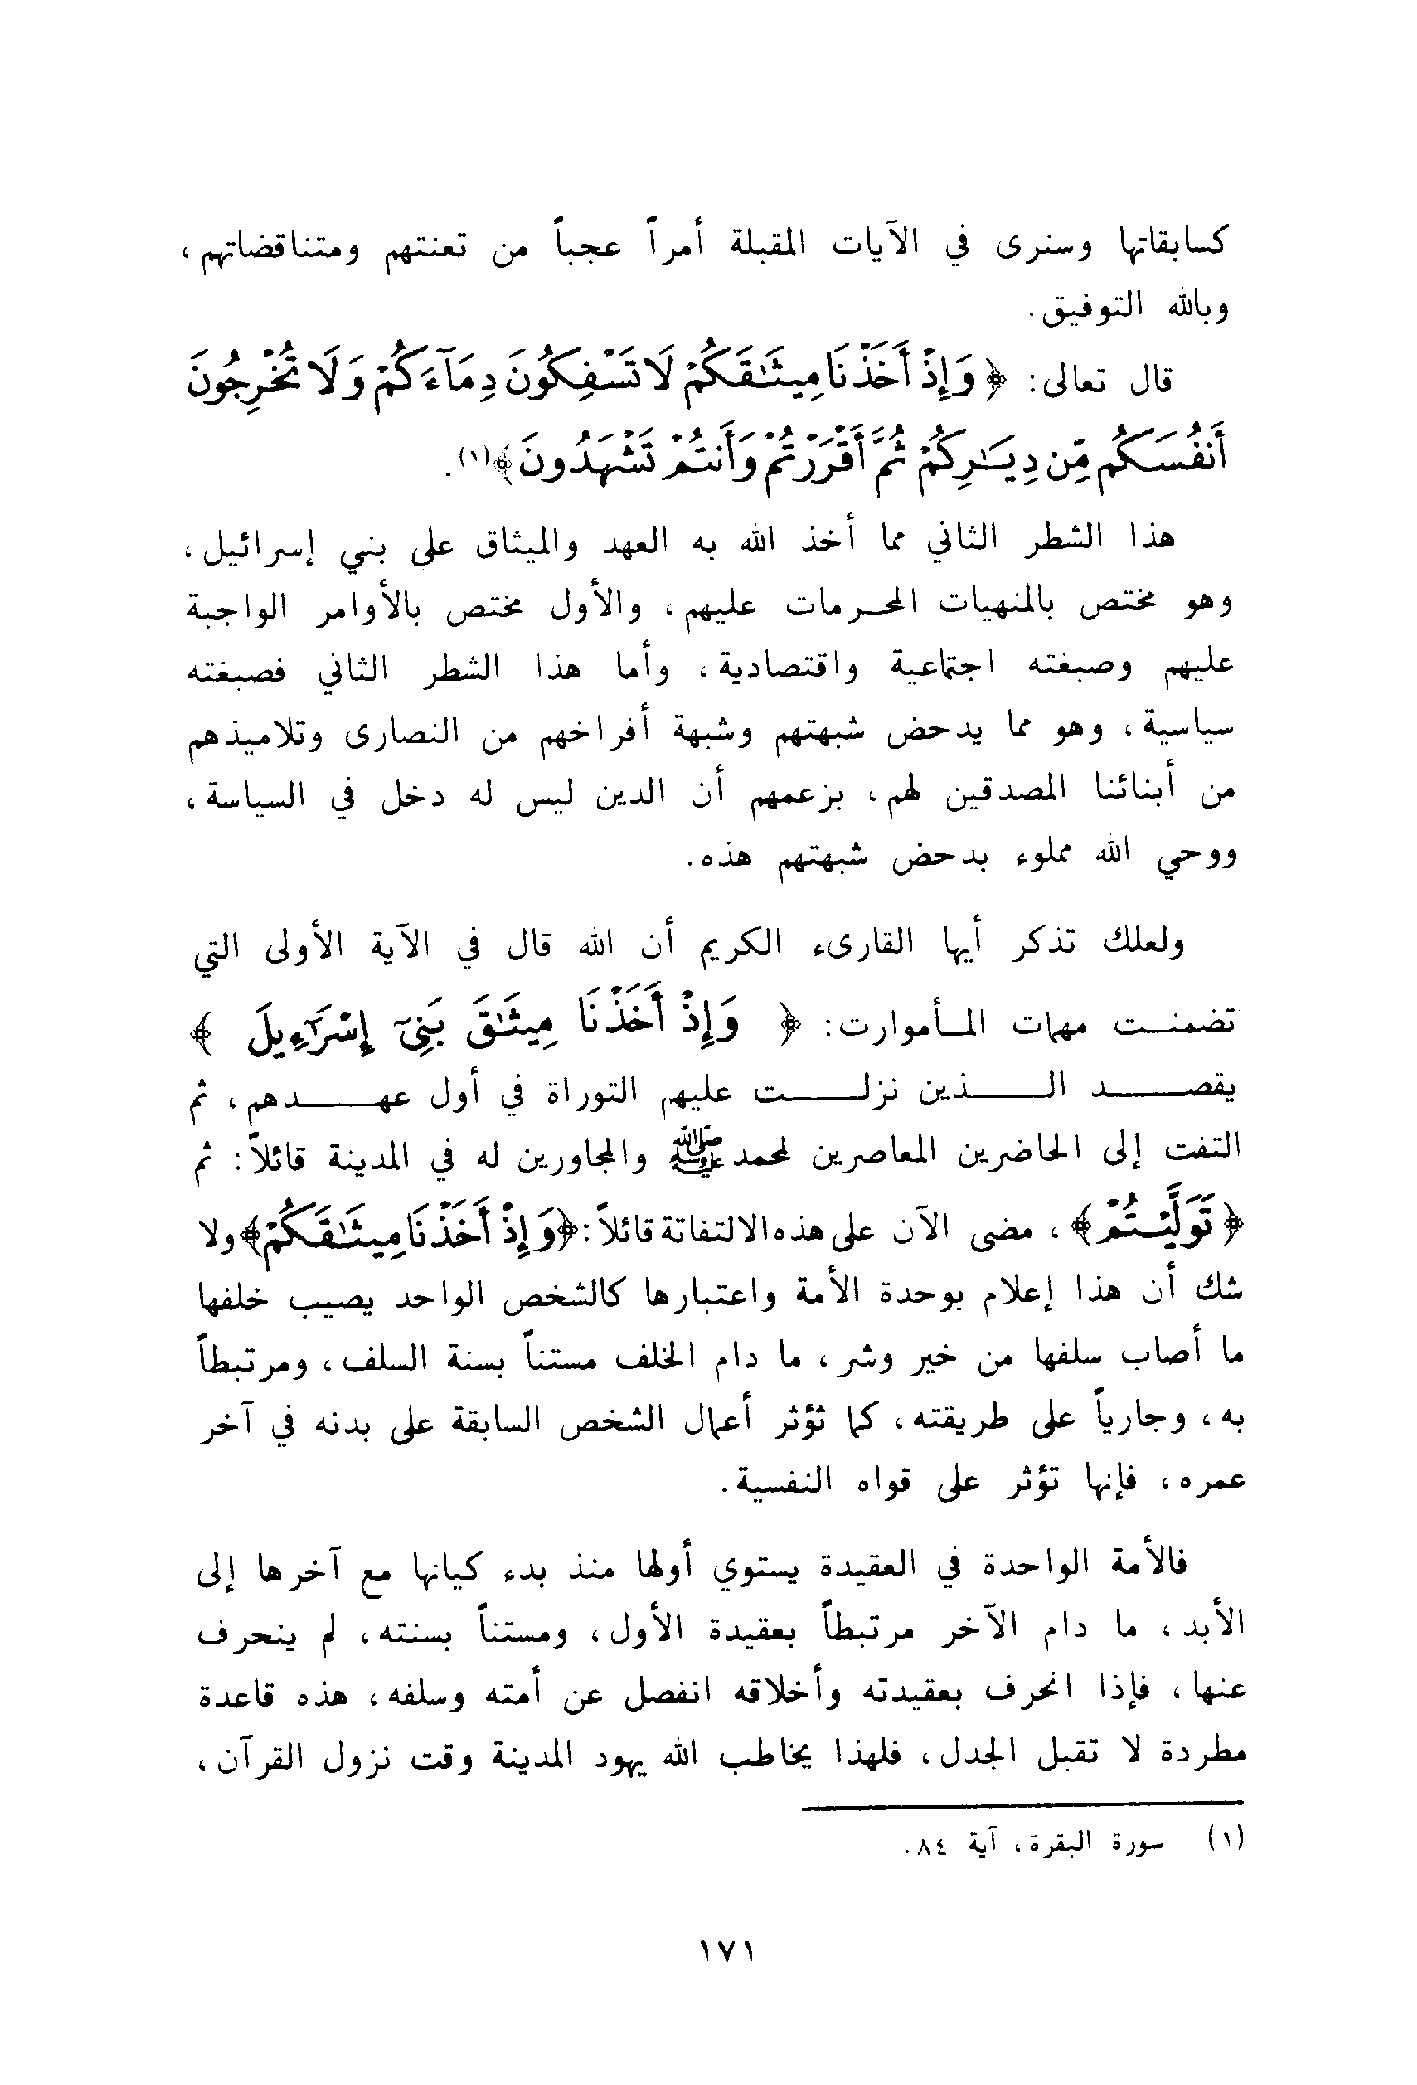 كسابقاتها وسنرى في الآيات المقبلة أمراً عجباً من تعنتهم ومتناقضاتهم،
وبالله التوفيق.
قال تعالى: ﴿ وَإِذْ أَخَذْنَا مِيثَٰقَكُمْ لَا تَسْفِكُونَ دِمَآءَكُمْ وَلَا تُخْرِجُونَ
أَنفُسَكُم مِّن دِيَٰرِكُمْ ثُمَّ أَقْرَرْتُمْ وَأَنتُمْ تَشْهَدُونَ ﴾(١).
هذا الشطر الثاني مما أخذ الله به العهد والميثاق على بني إسرائيل،
وهو مختص بالمنهيات المحرمات عليهم، والأول مختص بالأوامر الواجبة
عليهم وصبغته اجتماعية واقتصادية، وأما هذا الشطر الثاني فصبغته
سياسية، وهو مما يدحض شبهتهم وشبهة أفراخهم من النصارى وتلاميذهم
من أبنائنا المصدقين لهم، بزعمهم أن الدين ليس له دخل في السياسة،
ووحي الله مملوء بدحض شبهتهم هذه.
ولعلك تذكر أيها القارىء الكريم أن الله قال في الآية الأولى التي
تضمنت مهمات المأموارت: ﴿ وَإِذْ أَخَذْنَا مِيثَٰقَ بَنِىٓ إِسْرَٰٓءِيلَ ﴾
يقصد الذين نزلت عليهم التوراة في أول عهدهم، ثم
التفت إلى الحاضرين المعاصرين لمحمد ﷺ والمجاورين له في المدينة قائلاً: ثم
﴿ تَوَلَّيْتُمْ ﴾، مضى الآن على هذه الالتفاتة قائلاً: ﴿وَإِذْ أَخَذْنَا مِيثَٰقَكُمْ﴾ ولا
شك أن هذا إعلام بوحدة الأمة واعتبارها كالشخص الواحد يصيب خلفها
ما أصاب سلفها من خير وشر، ما دام الخلف مستناً بسنة السلف، ومرتبطاً
به، وجارياً على طريقته، كما تؤثر أعمال الشخص السابقة على بدنه في آخر
عمره، فإنها تؤثر على قواه النفسية.
فالأمة الواحدة في العقيدة يستوي أولها منذ بدء كيانها مع آخرها إلى
الأبد، ما دام الآخر مرتبطاً بعقيدة الأول، ومستناً بسنته، لم ينحرف
عنها، فإذا انحرف بعقيدته وأخلاقه انفصل عن أمته وسلفه، هذه قاعدة
مطردة لا تقبل الجدل، فلهذا يخاطب الله يهود المدينة وقت نزول القرآن،
(١) سورة البقرة، آية ٨٤.
١٧١